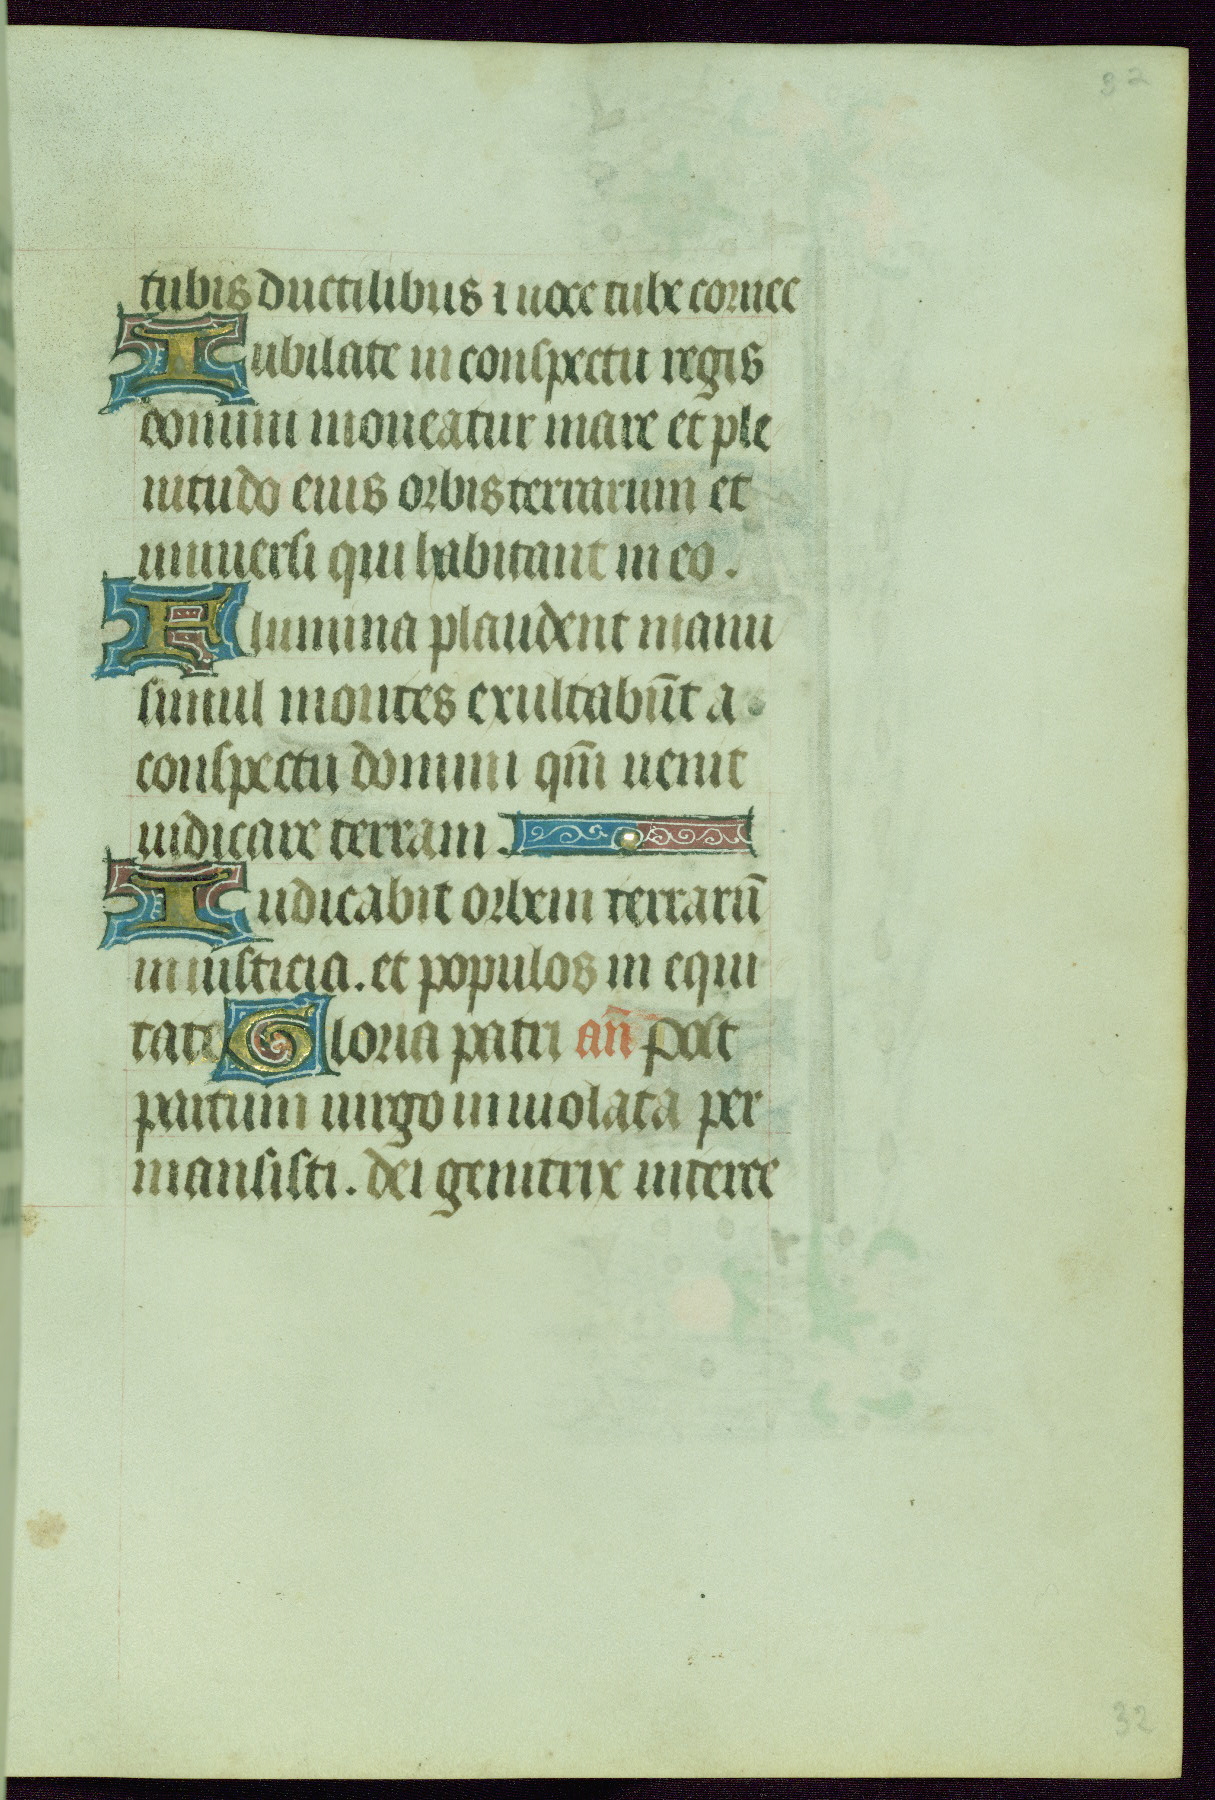 32
tubis ductilibus ⁊ uoce tube cornee
Iubilate in conspectu regis
domini moueatur mare et ple
nitudo eius orbis terrarum et
uniuersi qui habitant in eo.
Flumina plaudent manu
simul montes exultabūt a
conspectu domini qm̄ uenit
iudicare terram.
Iudicabit orbem terrarū
in iusticia. et populos in equi
tate Gloria patri an̄ Post
partum uirgo inuiolata per
mansisti. dei genitrix interce
32